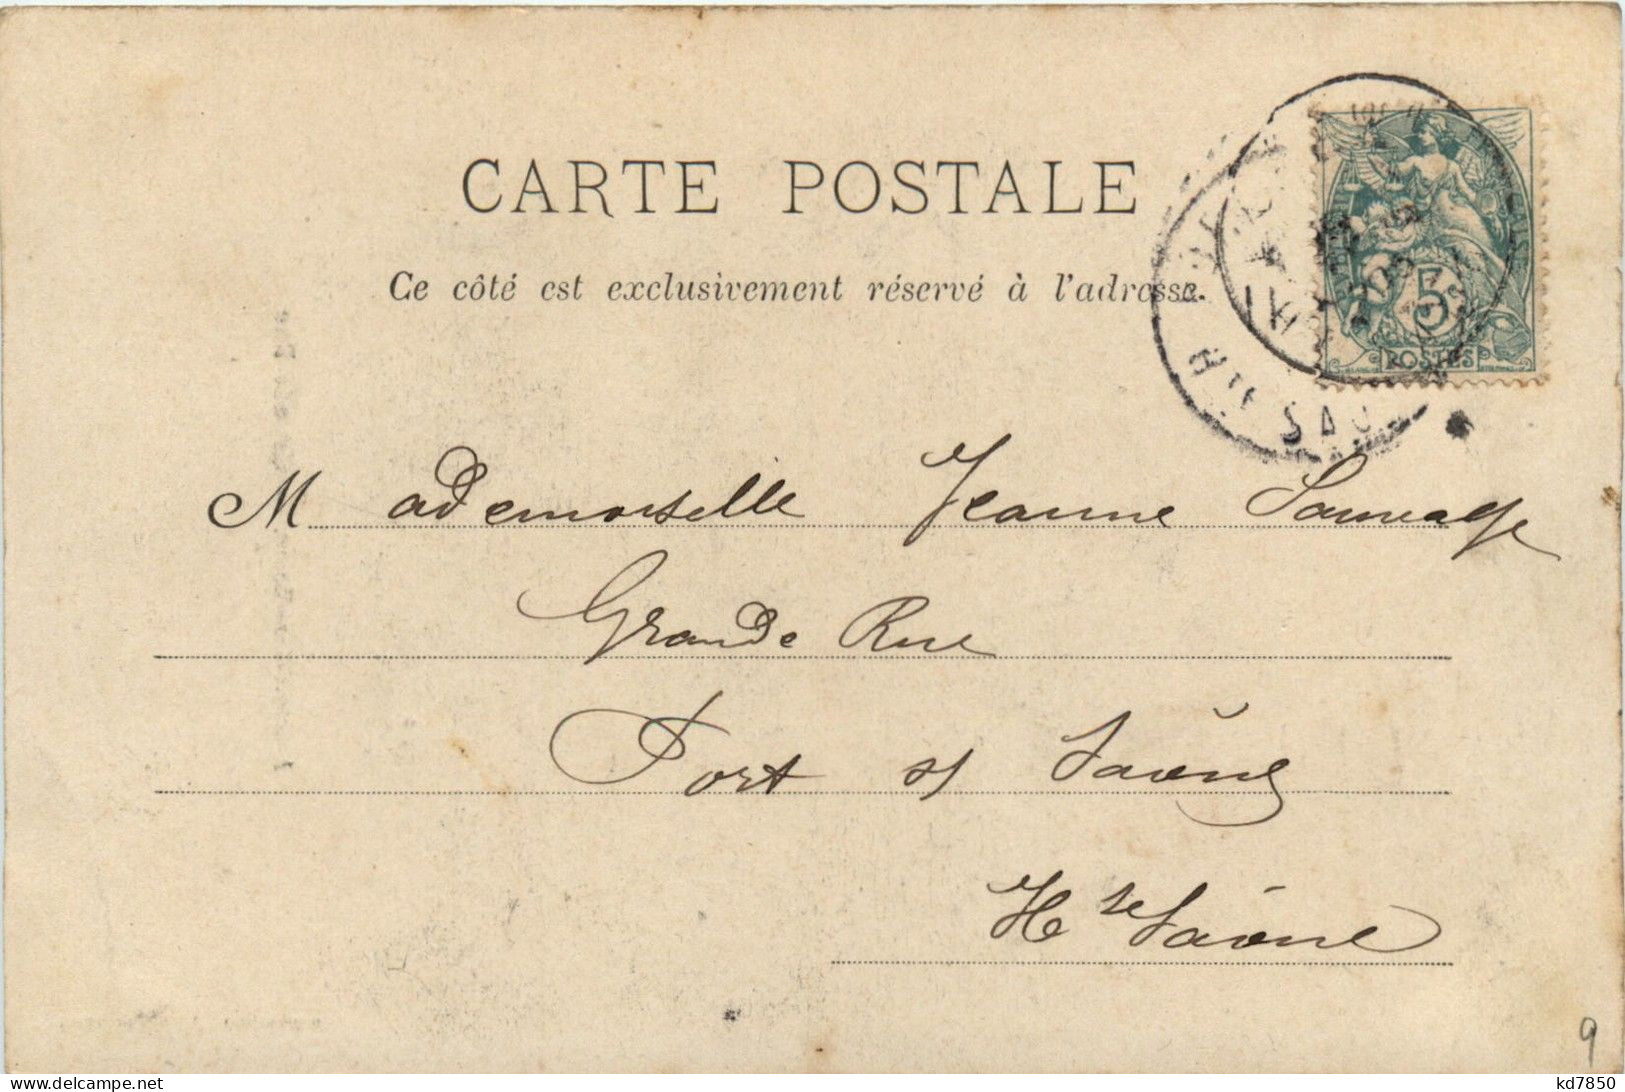 CARTE POSTALE
Ce côté est exclusivement réservé à l'adresse.
5
POSTES
Hte SAÔ
Mademoiselle Jeanne Sauvage
Grande Rue
Port s/ Saône
Hte Saône
9
kd7850